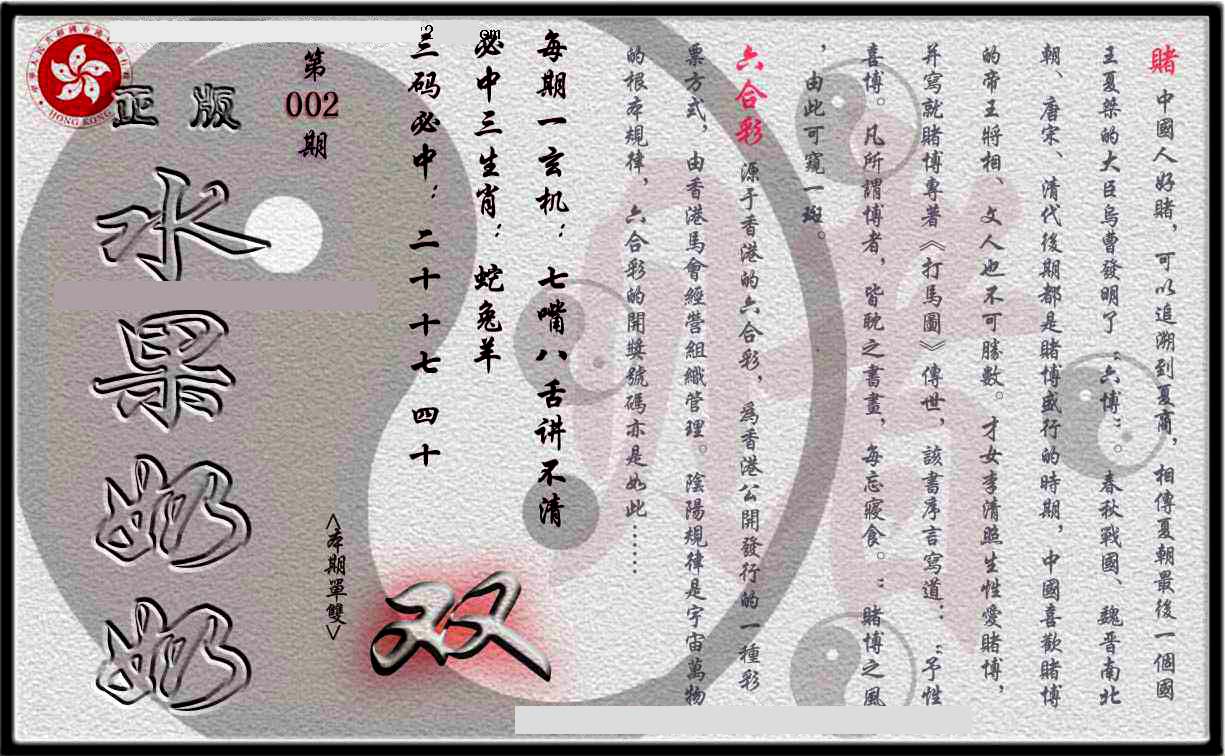 賭 中國人好賭，可以追溯到夏商，相傳夏朝最後一個國
王夏桀的大臣烏曹發明了“六博”。春秋戰國、魏晋南北
朝、唐宋、清代後期都是賭博盛行的時期，中國喜歡賭博
的帝王將相、文人也不可勝數。才女李清照生性愛賭博，
并寫就賭博專著《打馬圖》傳世，該書序言寫道：“予性
喜博。凡所謂博者，皆耽之晝晝，每忘寢食。”賭博之風
，由此可窺一斑。
六合彩 源于香港的六合彩，為香港公開發行的一種彩
票方式，由香港馬會經營組織管理。陰陽規律是宇宙萬物
的根本規律，六合彩的開獎號碼亦是如此……
每期一玄机：七嘴八舌讲不清
必中三生肖：蛇兔羊
三码必中：二十 十七 四十
<本期單雙>
双
第
002
期
正版
水
果
奶
奶
HONG KONG
om